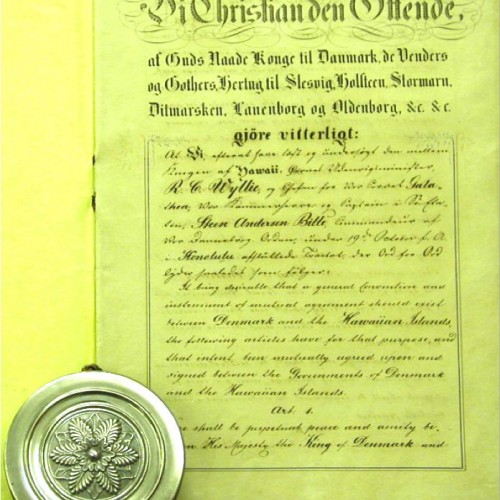 Vi Christian den Ottende,
af Guds Naade Konge til Danmark, de Venders
og Gothers, Hertug til Slesvig, Holsteen, Stormarn,
Ditmarsken, Lauenborg og Oldenborg, &c. &c.
gjöre vitterligt:
At Vi, efterat have læst og undersögt den mellem
Kongen af Hawaii, Udenrigsminister,
R. C. Wyllie, og Chefen for Vor Corvet Gala-
thea, Vor Kammerherre og Capitain i Sö-Eta-
ten, Steen Andersen Bille, Commandeur af
Vor Dannebrog Orden, under 19de October f. A.
i Honolulu afsluttede Tractat, der Ord for Ord
lyder saaledes som fölger:
It being desirable that a general Convention and
instrument of mutual agreement should exist
between Denmark and the Hawaiian Islands,
the following articles have for that purpose, and
that intent been mutually agreed upon and
signed between the Governments of Denmark
and the Hawaiian Islands.
Art 1.
shall be perpetual peace and amity be-
His Majesty the King of Denmark and